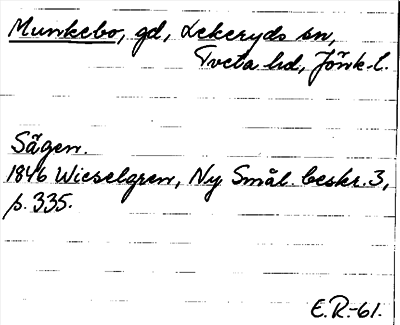 Munkebo, gd, Lekeryds sn,
Tveta hd, Jönk. l.
Sägen.
1846 Wieselgren, Ny Smål. beskr. 3,
p. 335.
E.R.-61.